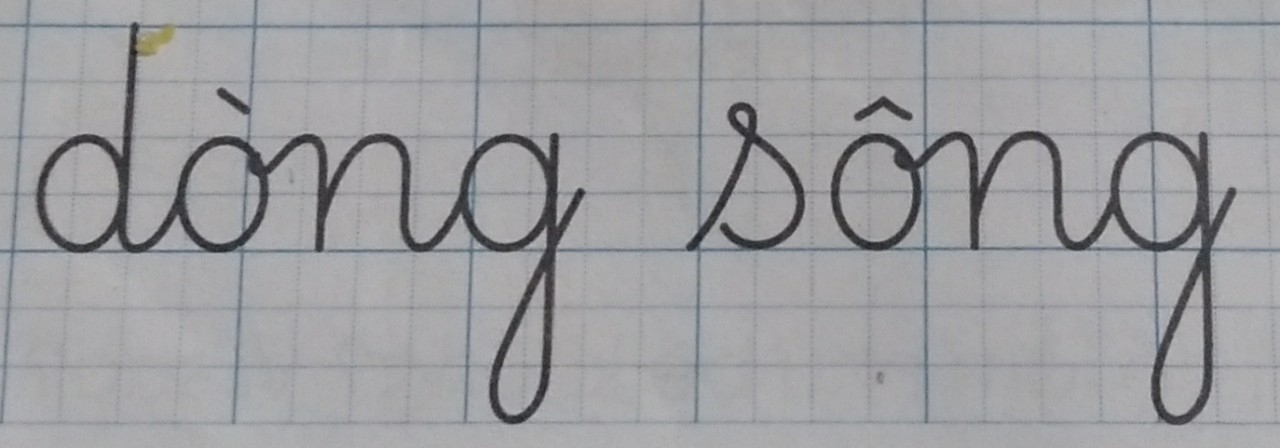 dòng sông